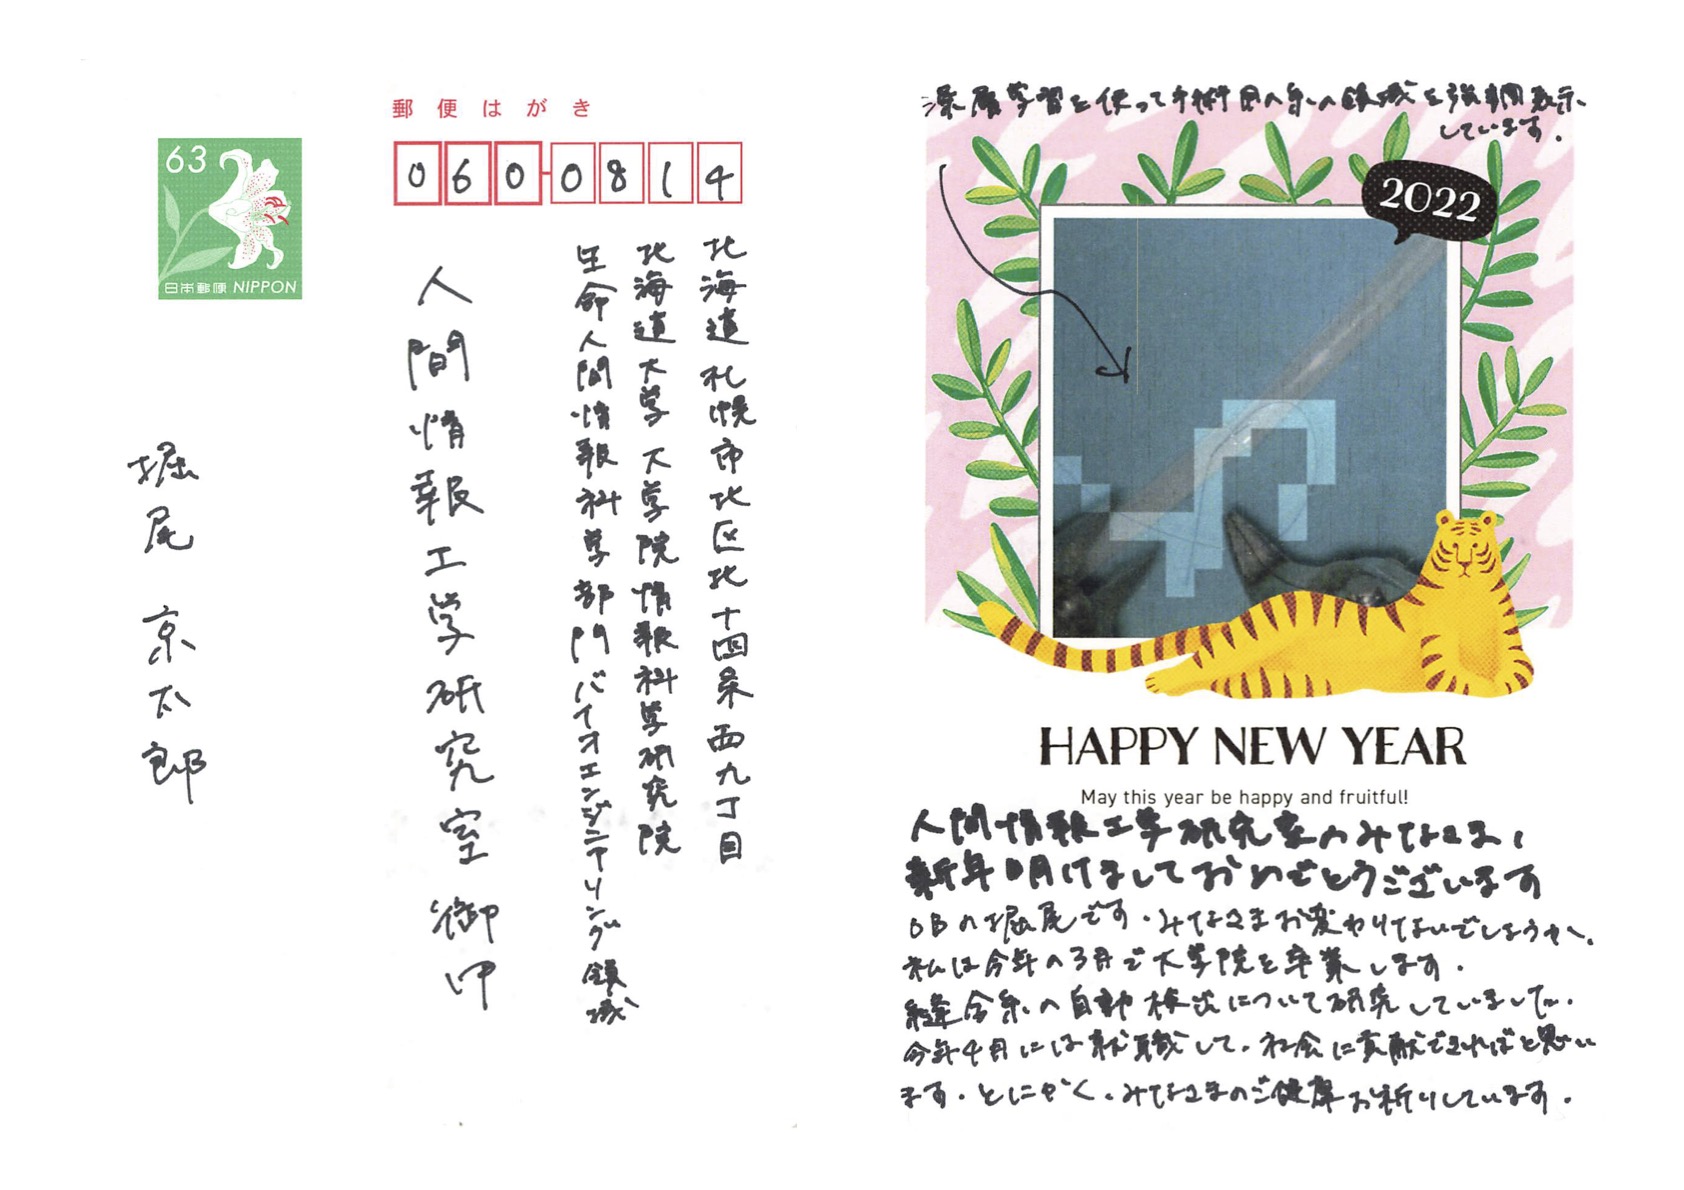 郵便はがき
63
日本郵便 NIPPON
060-0814
北海道札幌市北区北十四条西九丁目
北海道大学大学院情報科学研究院
生命人間情報科学部門バイオエンジニアリング領域
人間情報工学研究室 御中
堀尾 京太郎
深層学習を使って手術用の糸の領域を強調表示
しています。
2022
HAPPY NEW YEAR
May this year be happy and fruitful!
人間情報工学研究室のみなさま、
新年明けましておめでとうございます
OBの堀尾です。みなさまお変わりないでしょうか。
私は今年の3月で大学院を卒業します。
縫合糸の自動検出について研究していました。
今年4月には就職して、社会に貢献できればと思い
ます。とにかく、みなさまのご健康お祈りしています。